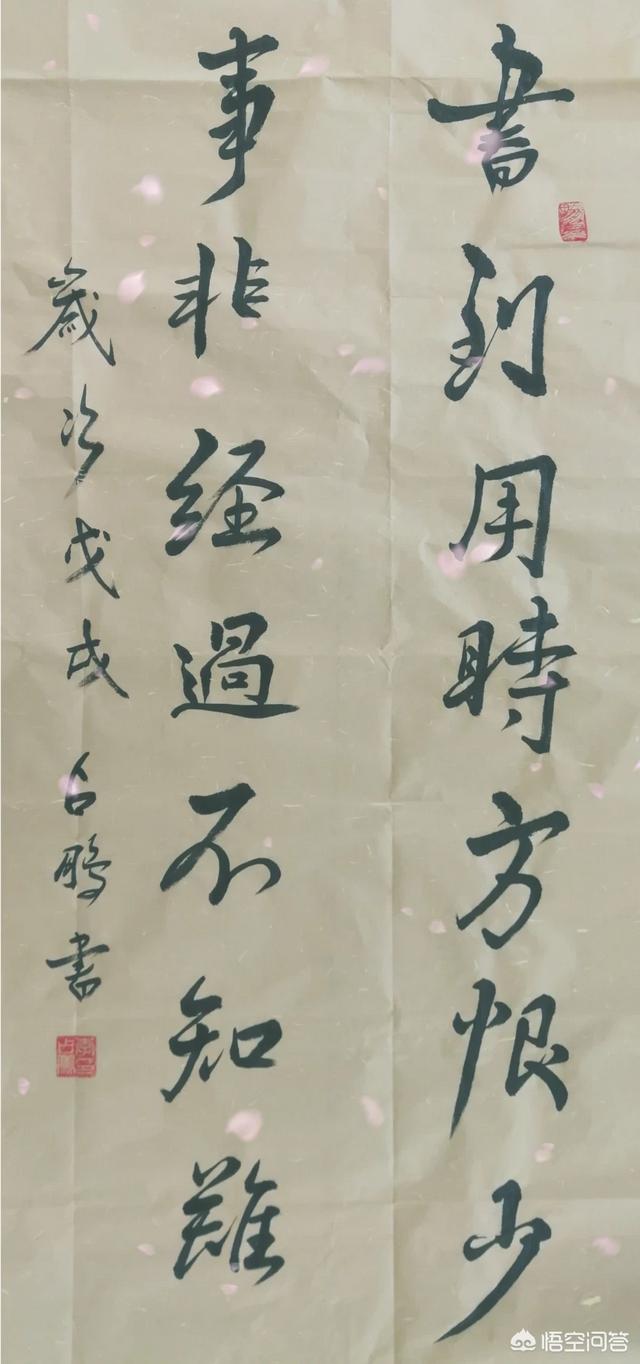 書到用時方恨少
事非經過不知難
歲次戊戌占鵬書
悟空问答